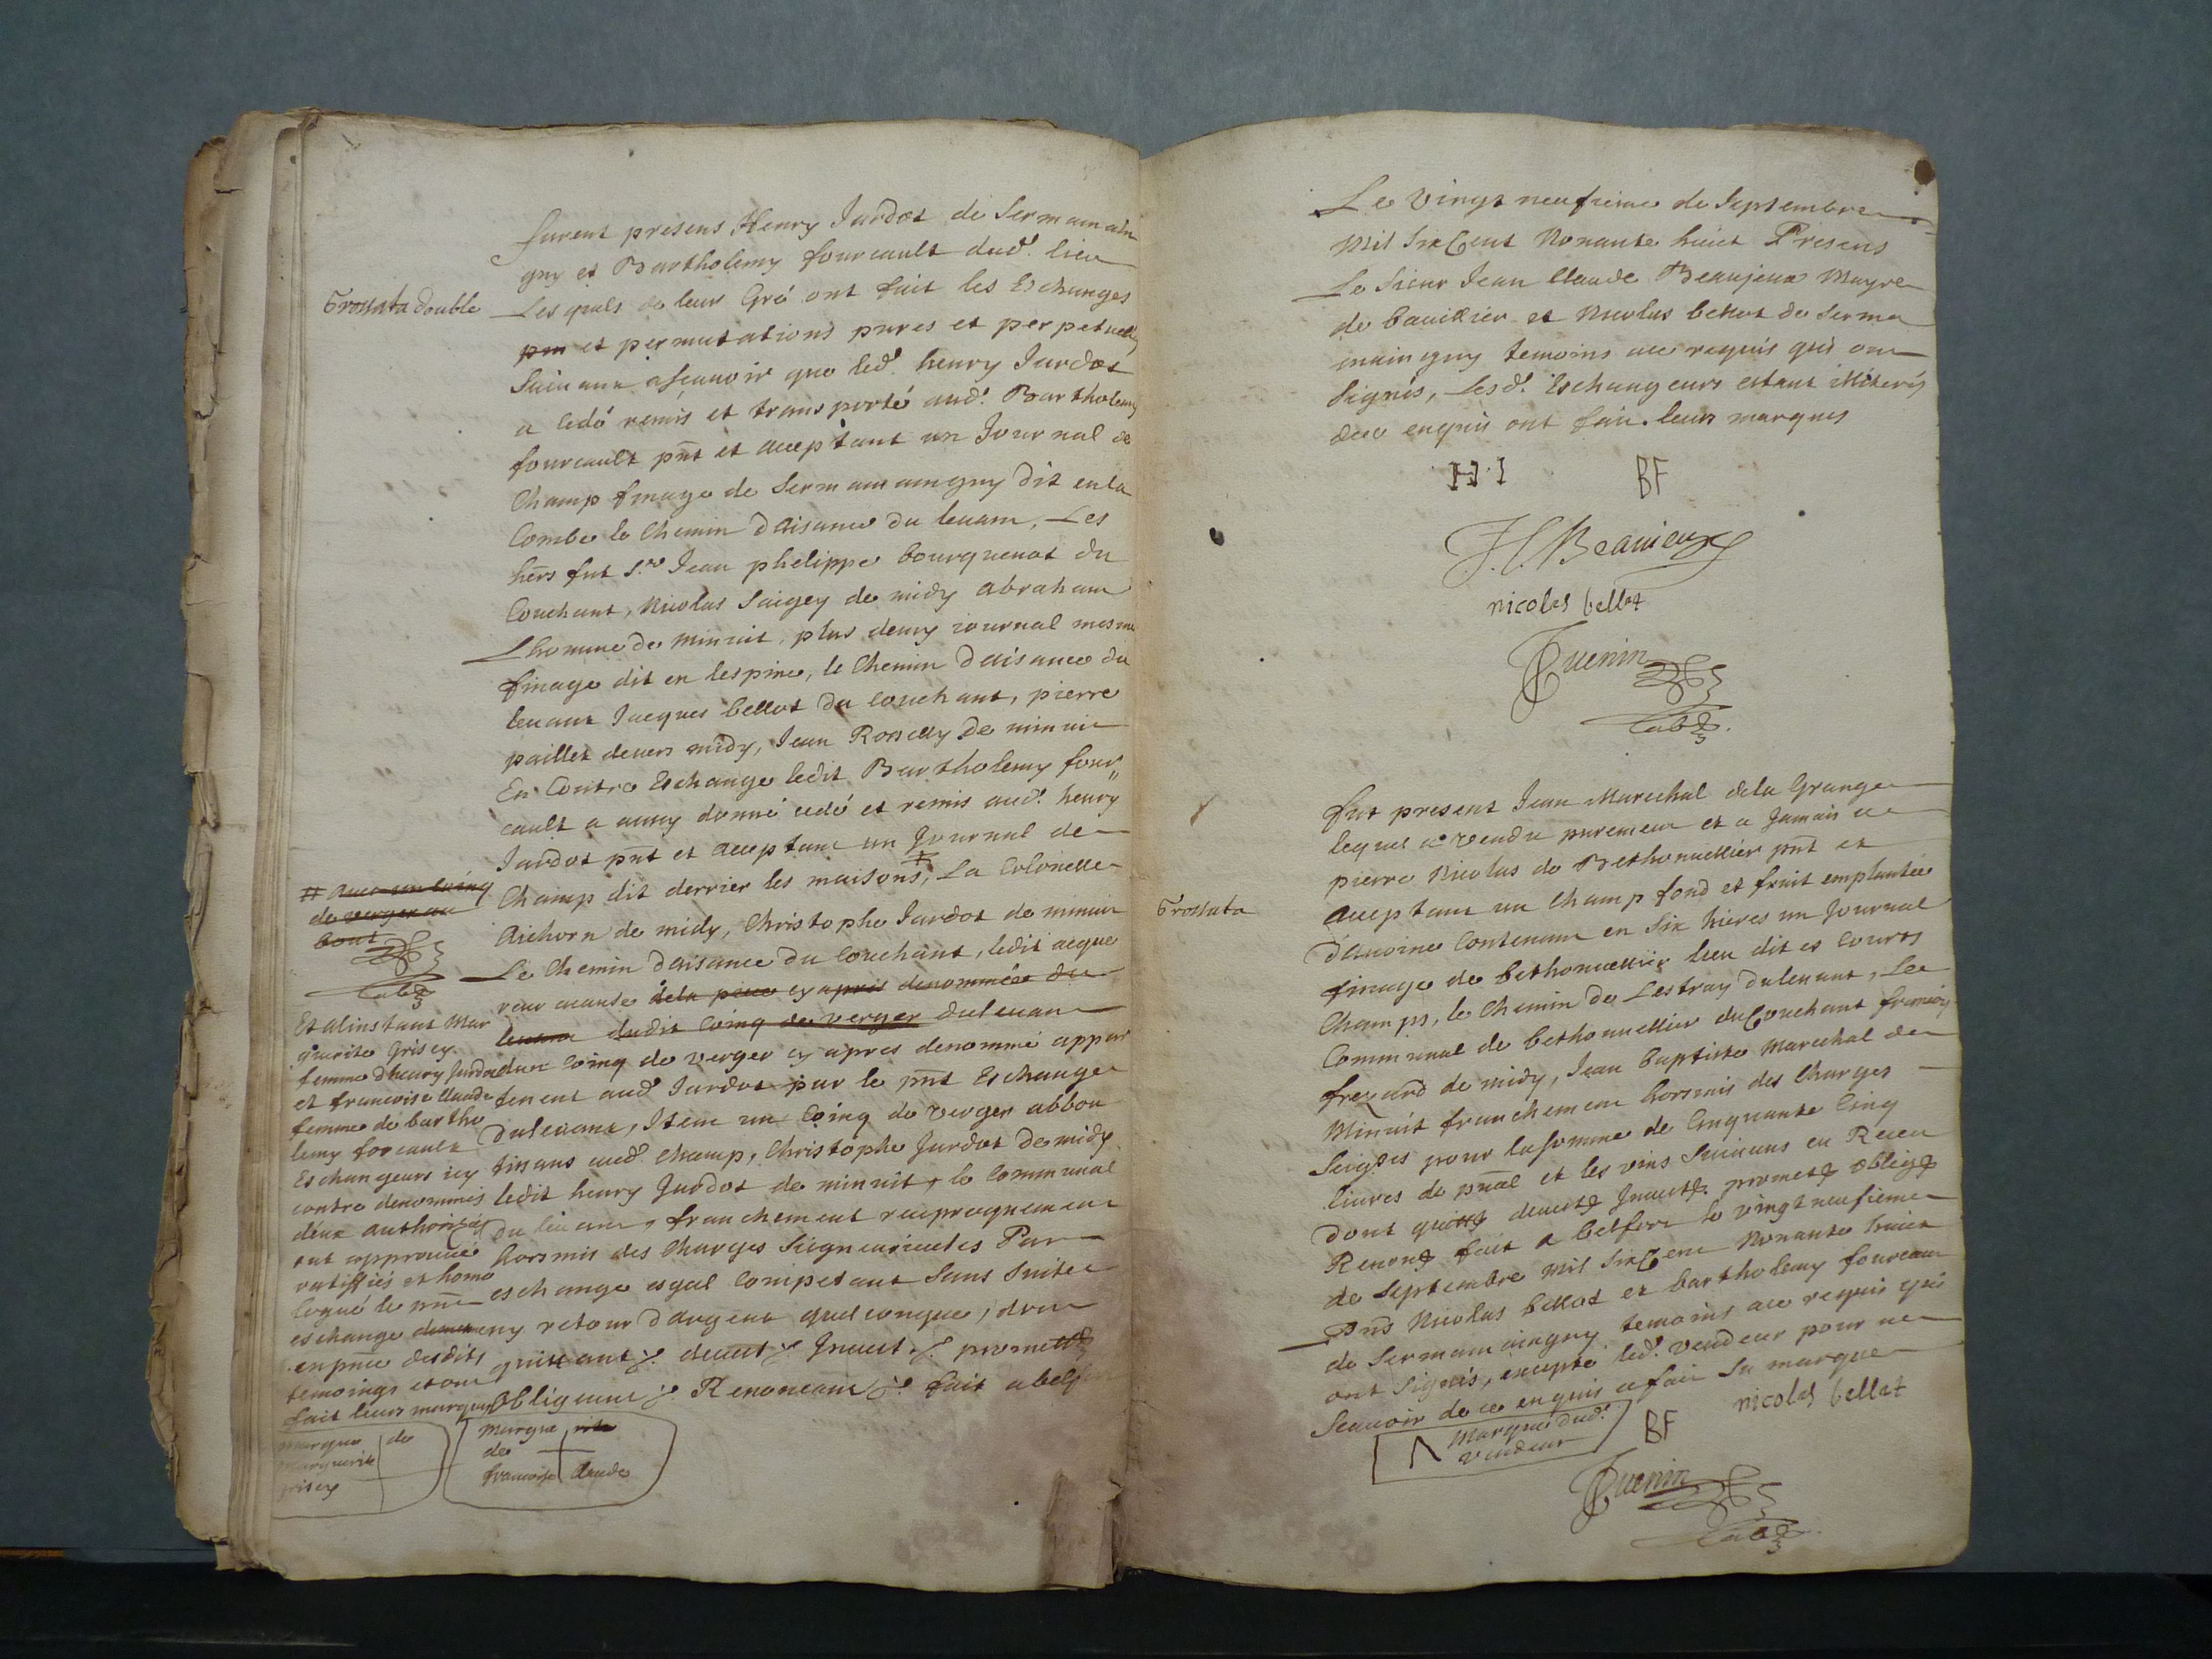 furent presens Henry Jardot de Sermamain
gny et Bartholemy fourcault dud. lieu
Grossata double
Lesquels de leur Gré ont fait les Eschanges
pm et permutations pures et perpetuelles
Suivans asçauoir que led. henry Jardot
a cedé remis et transporté aud. Bartholemy
fourcault pnt et acceptant un Journal de
Champ finage de Sermamaingny dit en la
Combe le Chemin daisance du leuam, Les
hers fut S.r Jean phelippe bourquenot du
Couchant, Nicolas Saigey de midy abraham
Lhomme de minuit, plus demy iournal mesme
finage dit en lespine, le Chemin daisance du
leuant Jacques bellot du couchant, pierre
paillet deuers midy, Jean Rosselly de minuit
En Contre Eschange ledit Bartholemy four
cault a aussy donné cedé et remis aud. henry
Jardot pnt et acceptant un Journal de
Champ dit derrier les maisons, La Colonelle
Aichorn de midy, Christophe Jardot de minuit
Le Chemin daisance du Couchant, ledit acque
reur acause dela piece cy apres denommée du
leuant dudit Coing de verger duleuant
dun Coing de verger cy apres denommé appar
tenent aud Jardot par le pnt Eschange
duleuant, Item un Coing de verger abbou
tissans aud. champ, Christophe Jardot de midy
ledit henry Jardot de minuit, le Communal
du leuant, franchement reciproquement
horsmis des charges Seigneurieules Par
eschange esgal Competant Sans Suitte
ny retour dargent quelconque, dont
quittant &. deuest &. Inuest &. promett&
Obligeant &. Renonceant &. fait a belfort
# auec un Coing
de verger au
bout
Et alinstant Mar
guerite Grisey
femme dhenry Jardot
et francoise Claude
femme de bartho
lemy forcault
Eschangeurs icy
contre denommés
deux authorisés
ont approuué
ratiffiés et homo
logué le pnt
eschange
enpnce desdits
temoings et ont
fait leurs marques
marque de
marguerite
grisey
marque
de
francoise Claude
Le Vingt neufieme de Septembre
Mil Six Cent Nonante huict Presens
Le Sieur Jean Claude Beaujeux Mayre
de bauillier et Nicolas bellot de Serma
maingny temoins ace requis qui ont
Signés, Lesd. Eschangeurs estant illiterés
dece enquis ont fait leurs marques
H·I BF
J. C. Beaujeux
nicolas bellot
Guenin
tab
fut present Jean Marechal dela Grange
lequel a vendu purement et a Jamais a
pierre Nicolas de Bethonuellier pnt et
Grossata
acceptant un Champ fond et fruit emplantée
dauoine Contenant en Six hieres un Journal
finage de bethonuellier lieu dit es Courts
Champs, le Chemin de Lestray duleuant, Le
Communal de bethonuellier duCouchant francois
frezard de midy, Jean baptiste Marechal de
Minuit franchement horsmis des Charges
Seig.es pour lasomme de Cinquante Cinq
liures de pnal et les vins Suiuans eu Receu
dont quitt& deuest& Inuest& promett& oblig&
Renon& fait a belfort le vingt neufieme
de Septembre Mil Six Cent Nonante huict
Pns Nicolas bellot et bartholemy fourcault
de Sermamaingny temoins ace requis qui
ont Signés, excepté led. vendeur pour ne
Scauoir de ce enquis a fait Sa marque
Marque dud.
vendeur
BF
nicolas bellot
Guenin
tab